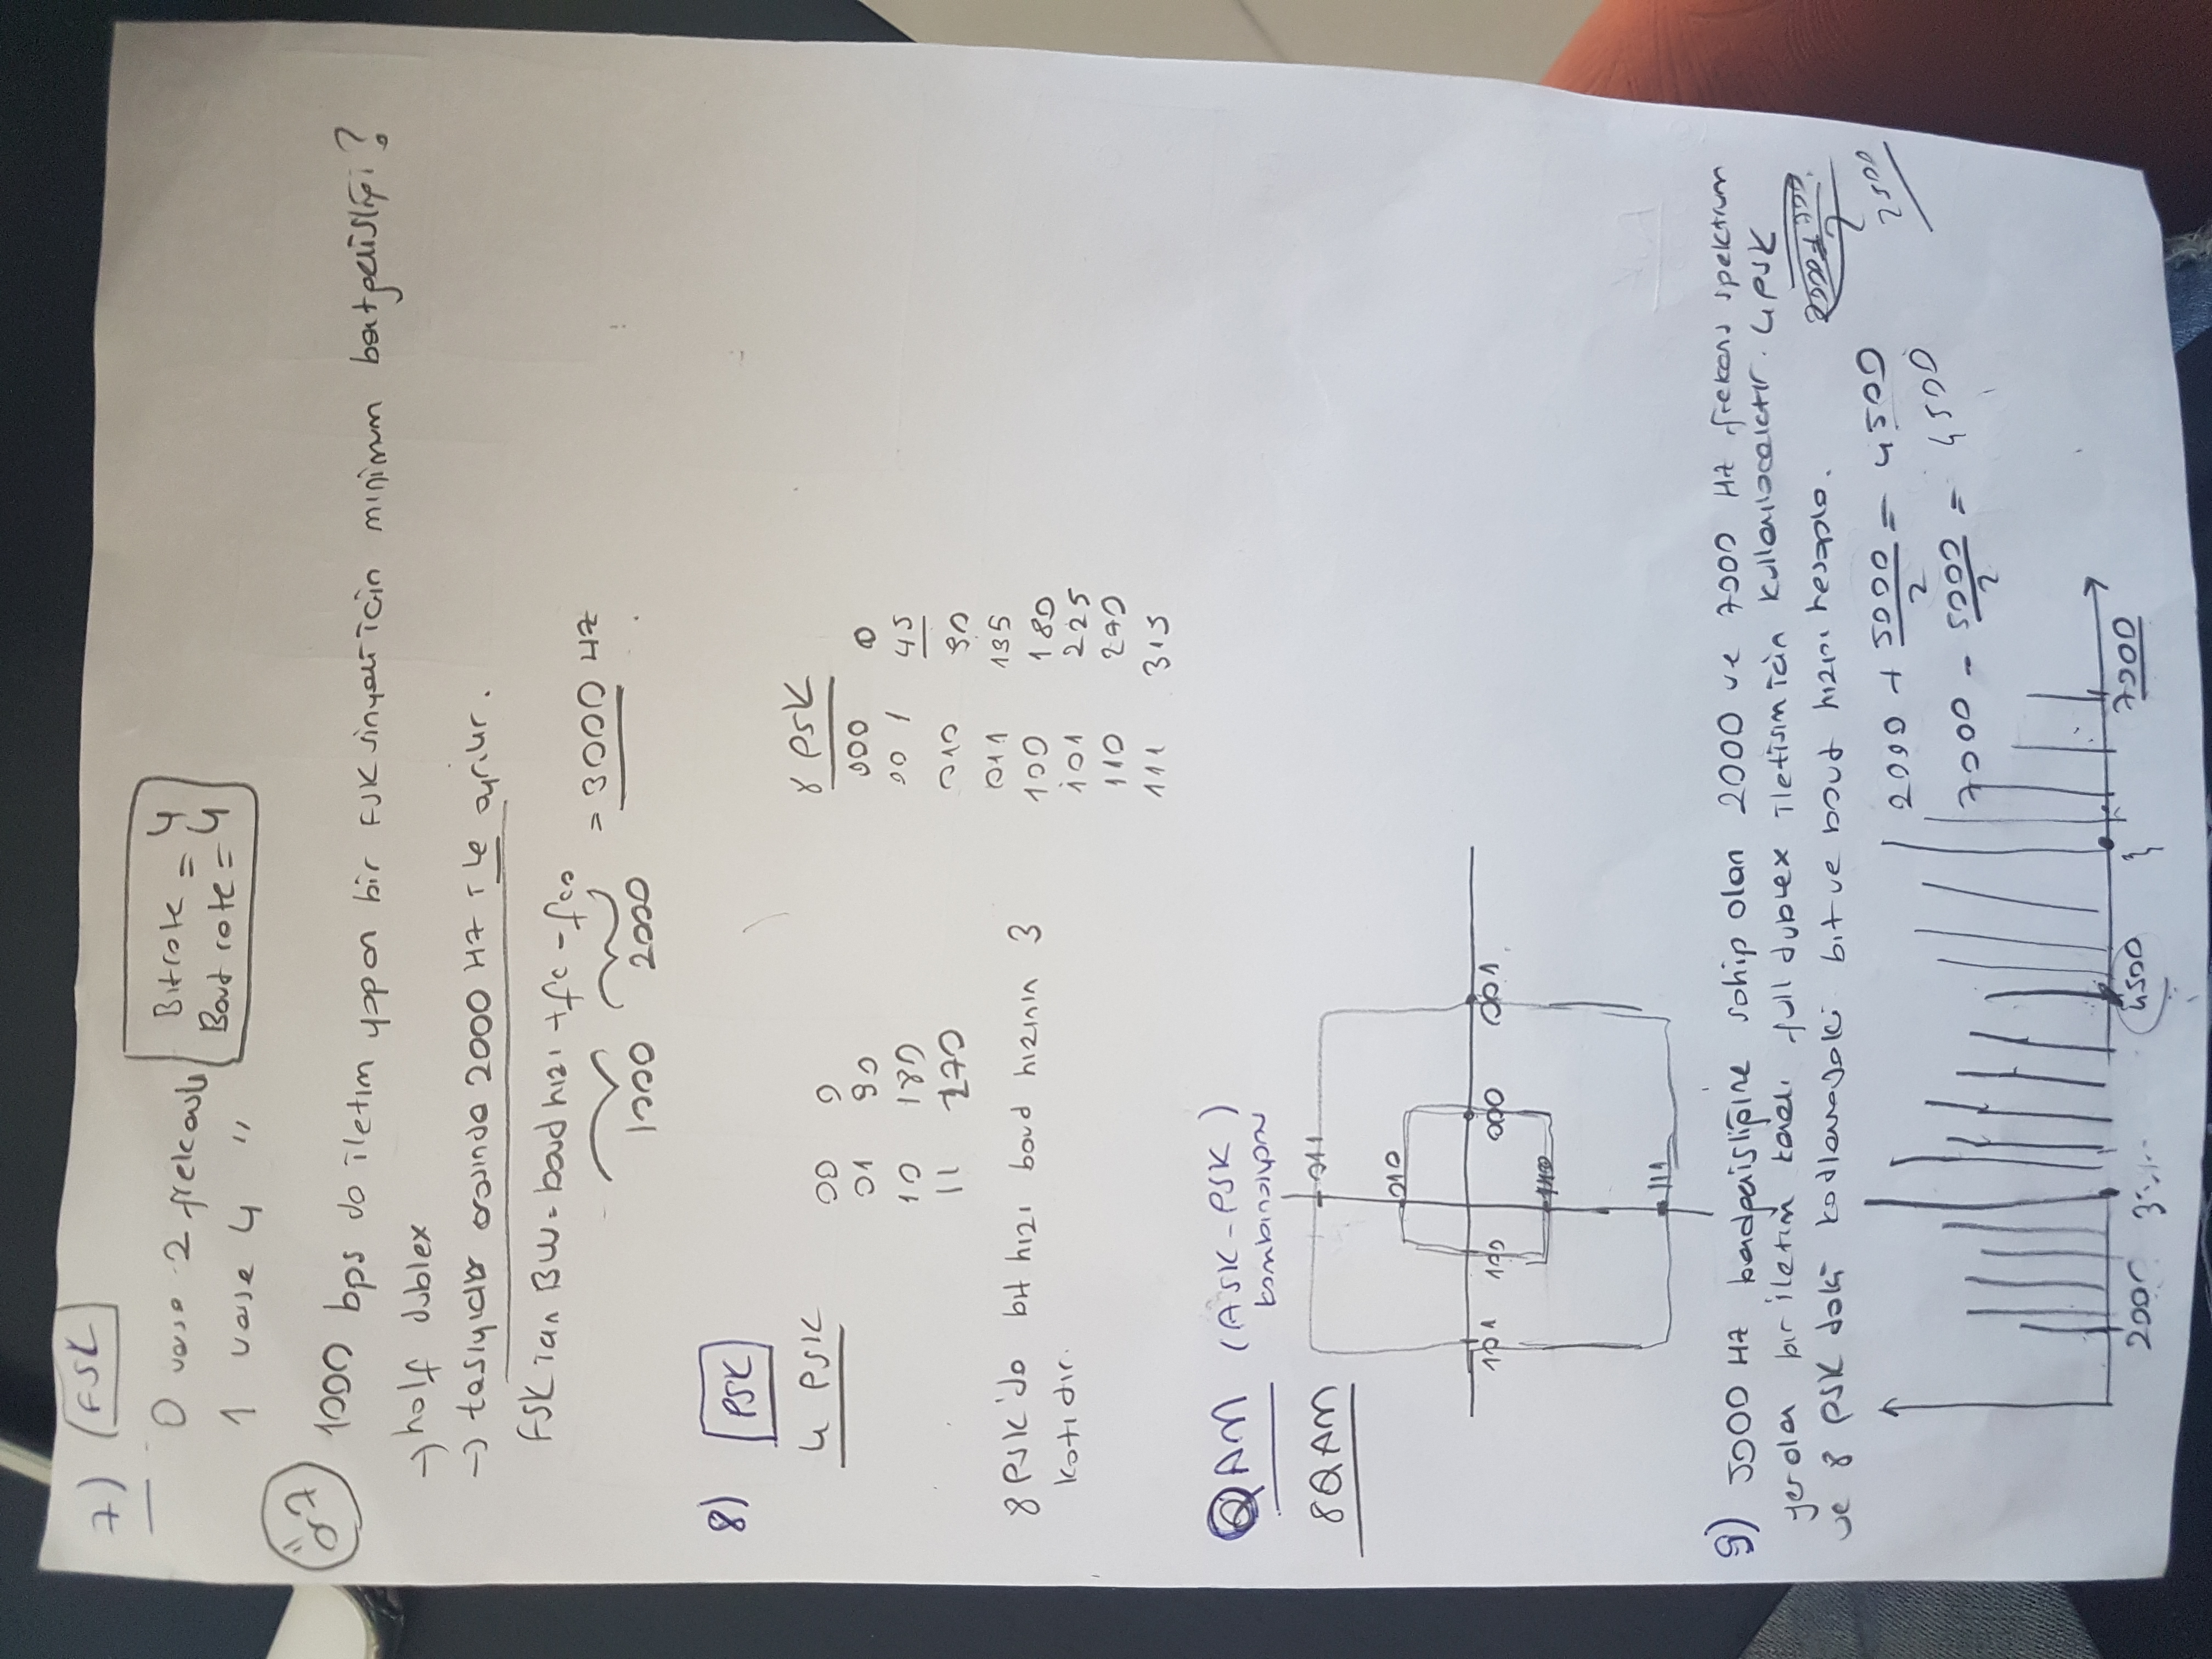 7) FSK
0 varsa 2 frekanslı
1 varse 4 "
Bitrate = 4
Baud rate = 4
ör 7
1000 bps da iletim yapan bir FSK sinyali için minimum bantgenisliği?
→ half dublex
→ tasıyıcılar arasında 2000 HZ ile ayrılır.
FSK ian BW = baud hızı + fc - fco
1000 2000
= 3000 HZ
8) PSK
4 PSK
00 0
01 90
10 180
11 270
8 PSK
000 0
001 45
010 90
011 135
100 180
101 225
110 270
111 315
8 PSK'da bit hızı baud hızının 3
katıdır.
QAM (ASK-PSK)
kombinasyonu
8QAM
011
010
101 100 000 001
110
111
9) 5000 HZ bandgenisliğine sahip olan 2000 ve 7000 HZ frekans spektrum
yer alan bir iletim kanalı full dublex iletisim icin kullanılacaktır. 4 PSK
ve 8 PSK daki kodlamadaki bit ve baud hızını hesapla.
2000 + 5000/2 = 4500
7000 - 5000/2 = 4500
2
2500
2000 3 4500 7000